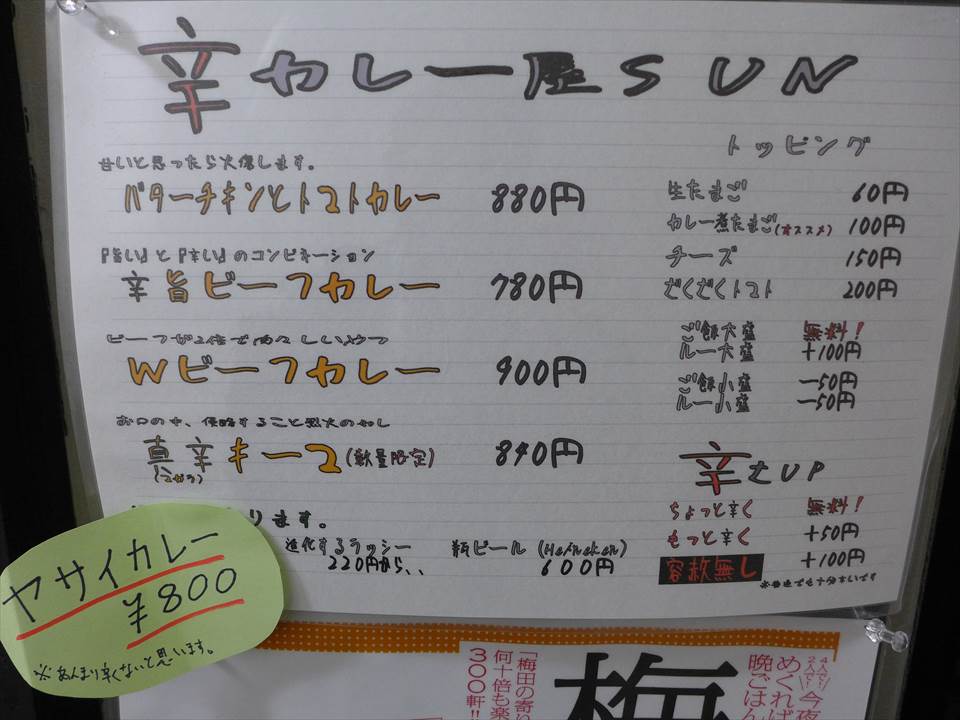 辛カレー屋SUN
甘いと思ったら火傷します。
バターチキンとトマトカレー 880円
『旨い』と『辛い』のコンビネーション
辛旨ビーフカレー 780円
ビーフが2倍で
Wビーフカレー 900円
お口の中、侵略すること烈火の如し
真辛キーマ(数量限定) 840円
ります。
進化するラッシー
220円から、、
瓶ビール (Heineken)
600円
トッピング
生たまご 60円
カレー煮たまご(オススメ) 100円
チーズ 150円
だくだくトマト 200円
ご飯大盛 無料!
ルー大盛 +100円
ご飯小盛 −50円
ルー小盛 −50円
辛さUP
ちょっと辛く 無料!
もっと辛く +50円
容赦無し +100円
※普通でも十分辛いです
ヤサイカレー
¥800
※あんまり辛くないと思います。
「梅田の寄り
何十倍も楽
300軒!!
梅
今夜
めくれば
晩ごはん